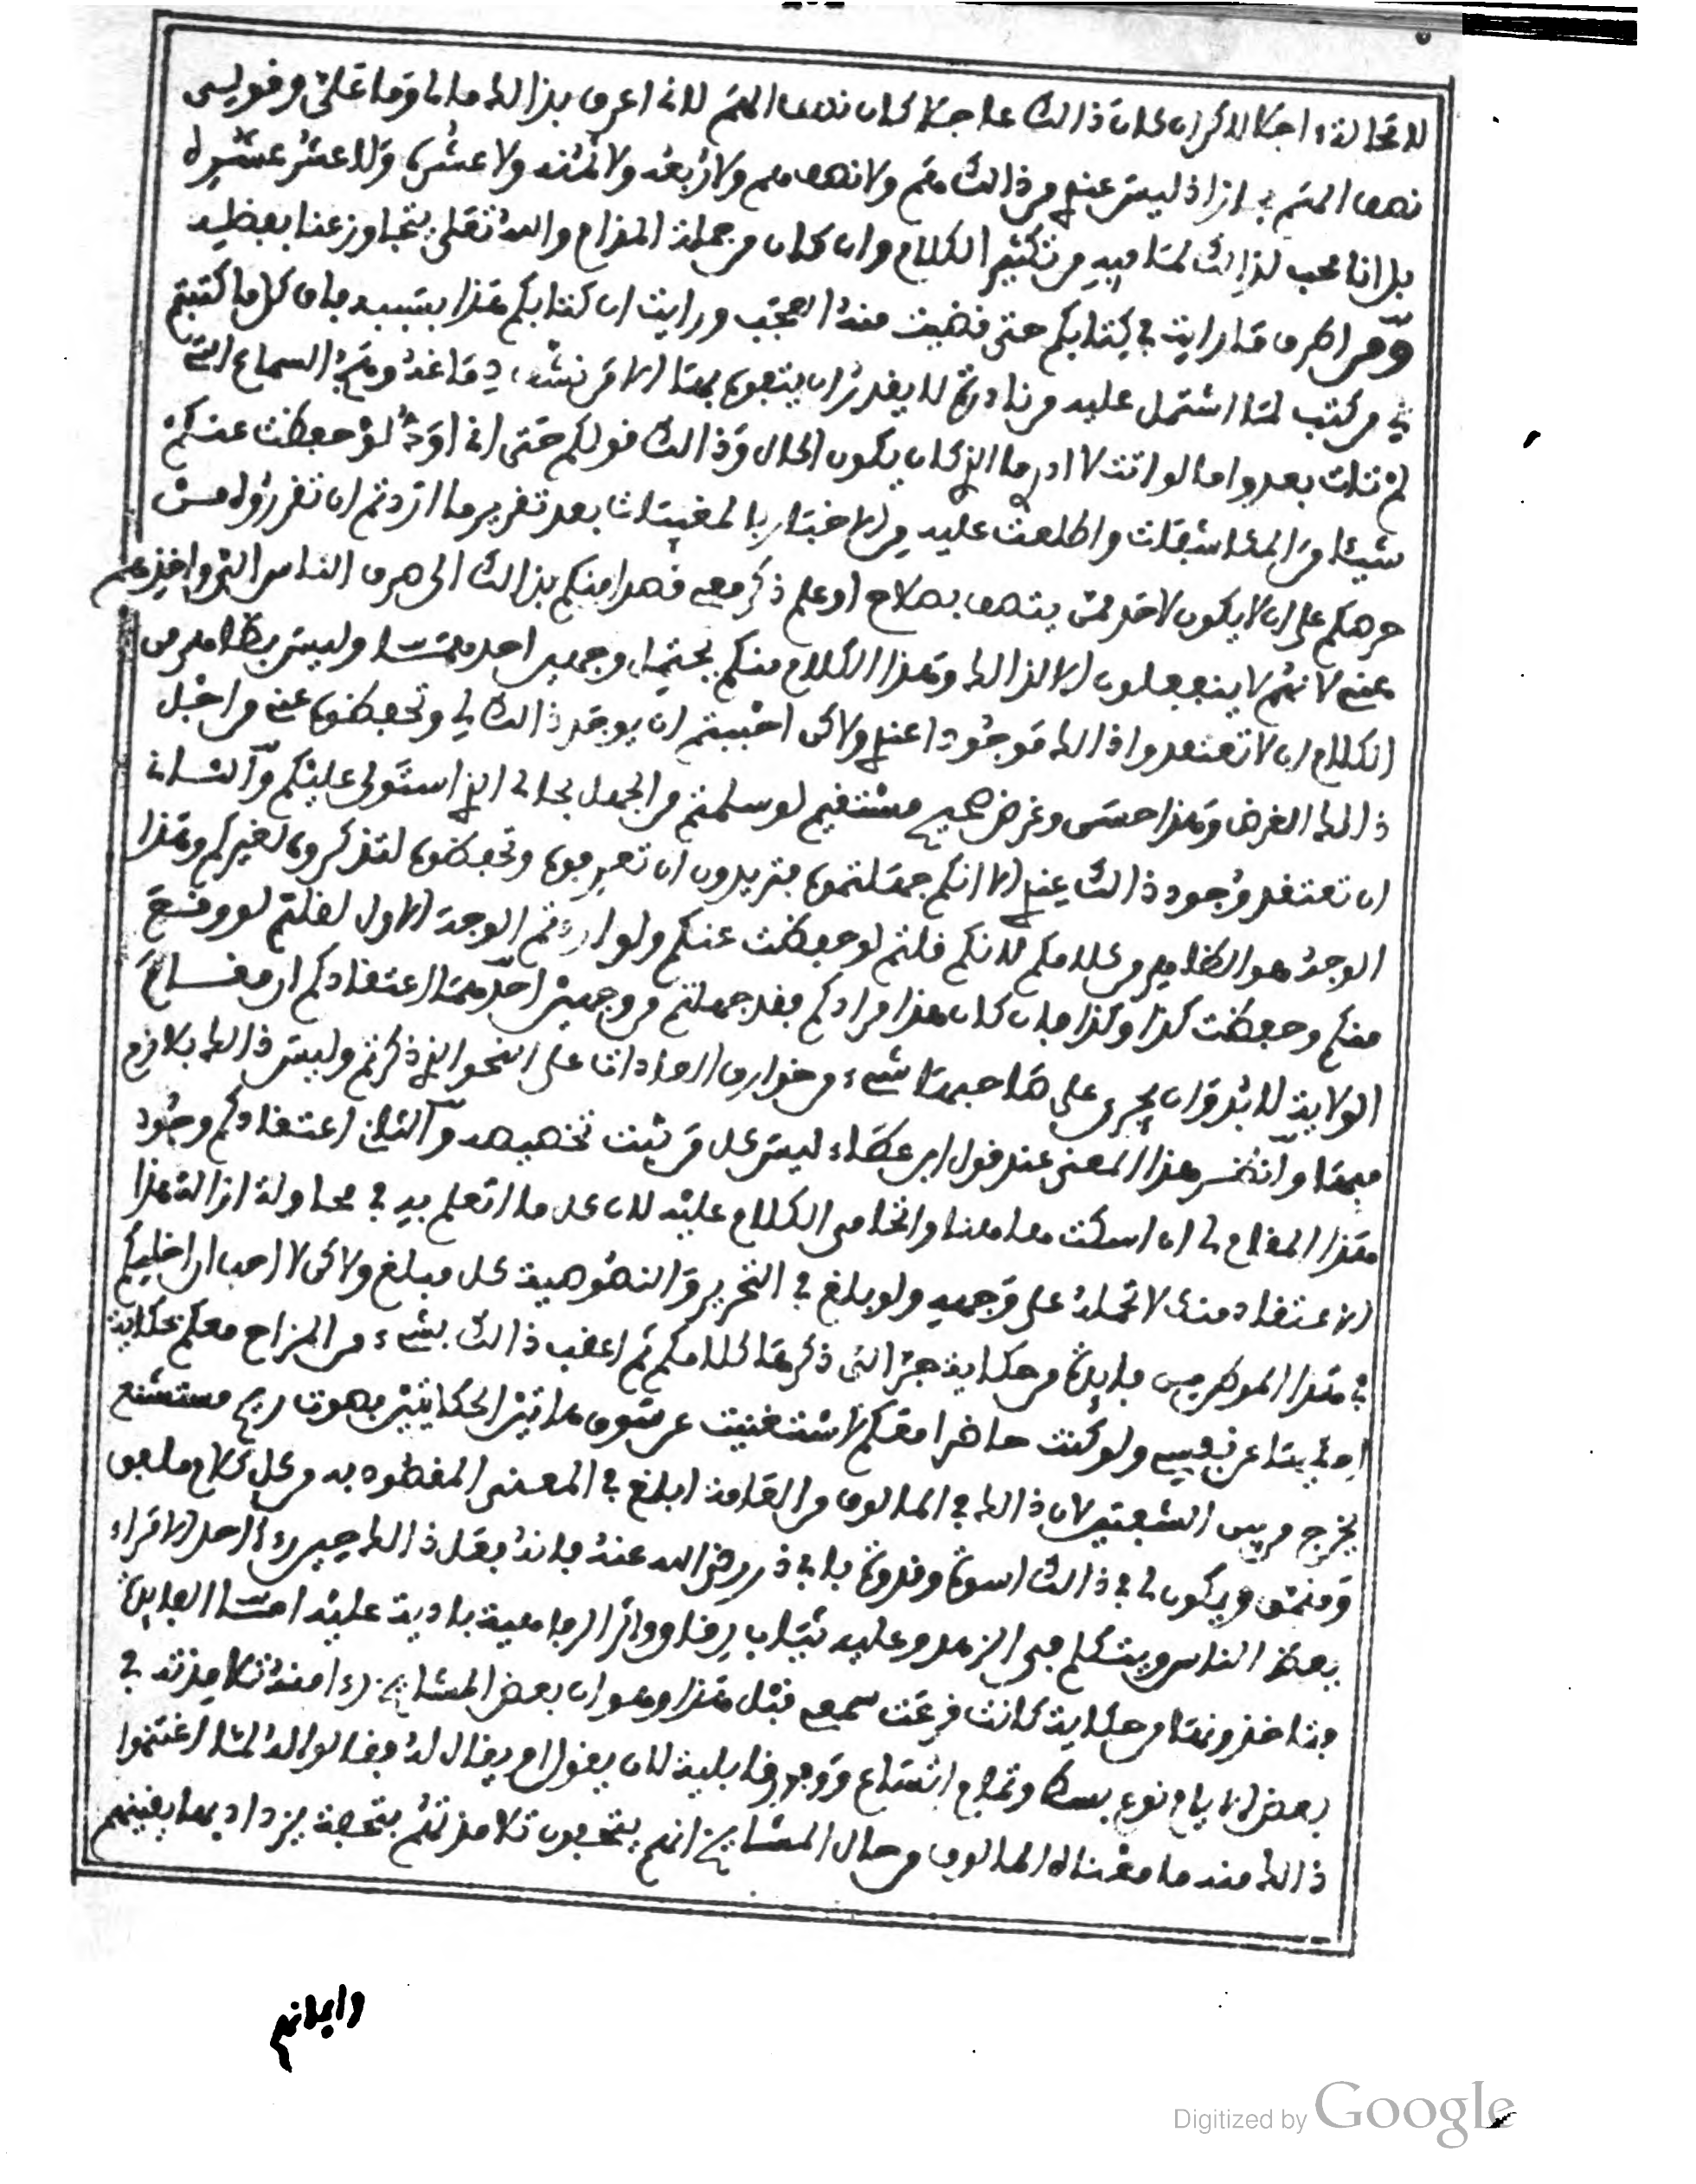 لا محالة اجتالا كران كان ذالك عاجتلا كان نصف المتم لانه اعرف بذالك
نصف المتم بل انا اذ ليس عندي من ذالك متم ولا نصف متم ولا ربعه ولا ثمنه ولا عشره ولا عشر عشيره
بل انا محب لذالك لما فيه من تكثير الكلام وان كان من جملة المزاح والله تعلى يتجاوز عنا بفضله
ومن اطرف ما رايت في كتابكم حتى قضيت منه العجب ورايت ان كتابكم هذا بسببه فاق كل ما كتبتم
لي من كتب لما اشتمل عليه من نادرة لا يقدر ان يتفوه بها الا من نشا في
لم تات بعد واما لو اتت لا ادري ما الذي كان يكون الحال وذالك قولكم حتى اني اود لو حفظت عنكم
شيئا من المكاشفات واطلعت عليه من الاخبار بالمغيبات بعد تقرير ما اردتم ان تقرروه من
حرصكم على ان لا يكون لاحد ممن يتصف بصلاح او علم ذكر معي قصدا منكم بذالك الى صرف الناس الي واخذهم
عني لانهم لا ينفعلون الا لذالك وهذا الكلام منكم يحتمل وجهين احدهما وليس بظاهر من
الكلام ان لا تعتقدوا ذالك موجودا عندي ولاكن احببتم ان يوجد ذالك لي وتحفظوه عني من اجل
ذالك الغرض وهذا حسن وغرض صحيح مستقيم لو سلمتم من الجهل بحالي الذي استولى عليكم والثاني
ان تعتقد وجود ذالك عندي الا انكم جهلتموه فتريدون ان تعرفوه وتحفظوه لتذكروه لغيركم وهذا
الوجه هو الظاهر من كلامكم لانكم قلتم لو حفظت عنكم ولو اردتم الوجه الاول لقلتم لو وقع
منكم وحفظت كذا وكذا فان كان هذا مرادكم فقد جهلتم من وجهين احدهما اعتقادكم ان مقام
الولاية لا بد وان يجري على صاحبها شيء من خوارق العادات على النحو الذي ذكرتم وليس ذالك بلازم
فيها وانظر هذا المعنى عند قول ابن عطاء ليس كل من ثبت تخصيصه والثاني اعتقادكم وجود
هذا المقام لي ان اسكت معاملنا واتحامى الكلام عليه لان كل ما اتعلم به في محاولة ازالة هذا
الاعتقاد منك لا تحمله على وجهه ولو بلغ في التحرير والنصوصية كل مبلغ ولاكن لا احب ان اخليكم
في هذا الموطن من فايدة من حكاية التي ذكرها كلامكم ثم اعقب ذالك بشيء من المزاح معكم بحكاية
عن نفسي ولو كنت حاضرا معكم لاستغنيت عن سوق هاتين الحكايتين بصوت ريح مستشنع
يخرج من بين الشفتين لان ذالك في المالوف من العامة ابلغ في المعنى المقصود به من كل كلام ملفق
ومنمق ويكون لي في ذالك اسوة وقدوة بابي ذر رضي الله عنه فانه فعل ذالك حين رءا احد الامراء
بعض الناس ويتكلم في الزهد وعليه ثياب رقاق واثار الرفاهية بادية عليه اما الفايدة
فتاخذونها من حكاية كانت قرعت سمعي قبل هذا وهو ان بعض المشايخ رءا منه تلامذته في
بعض الايام نوع بسط وتمام اتساع ووجود قابلية لان يقول او يقال له فقالوا له لما اغتنموا
ذالك منه ما معناه المالوف من حال المشايخ انهم يتحفون تلامذتهم بتحفة يزداد بها يقينهم
وايمانهم
Digitized by Google